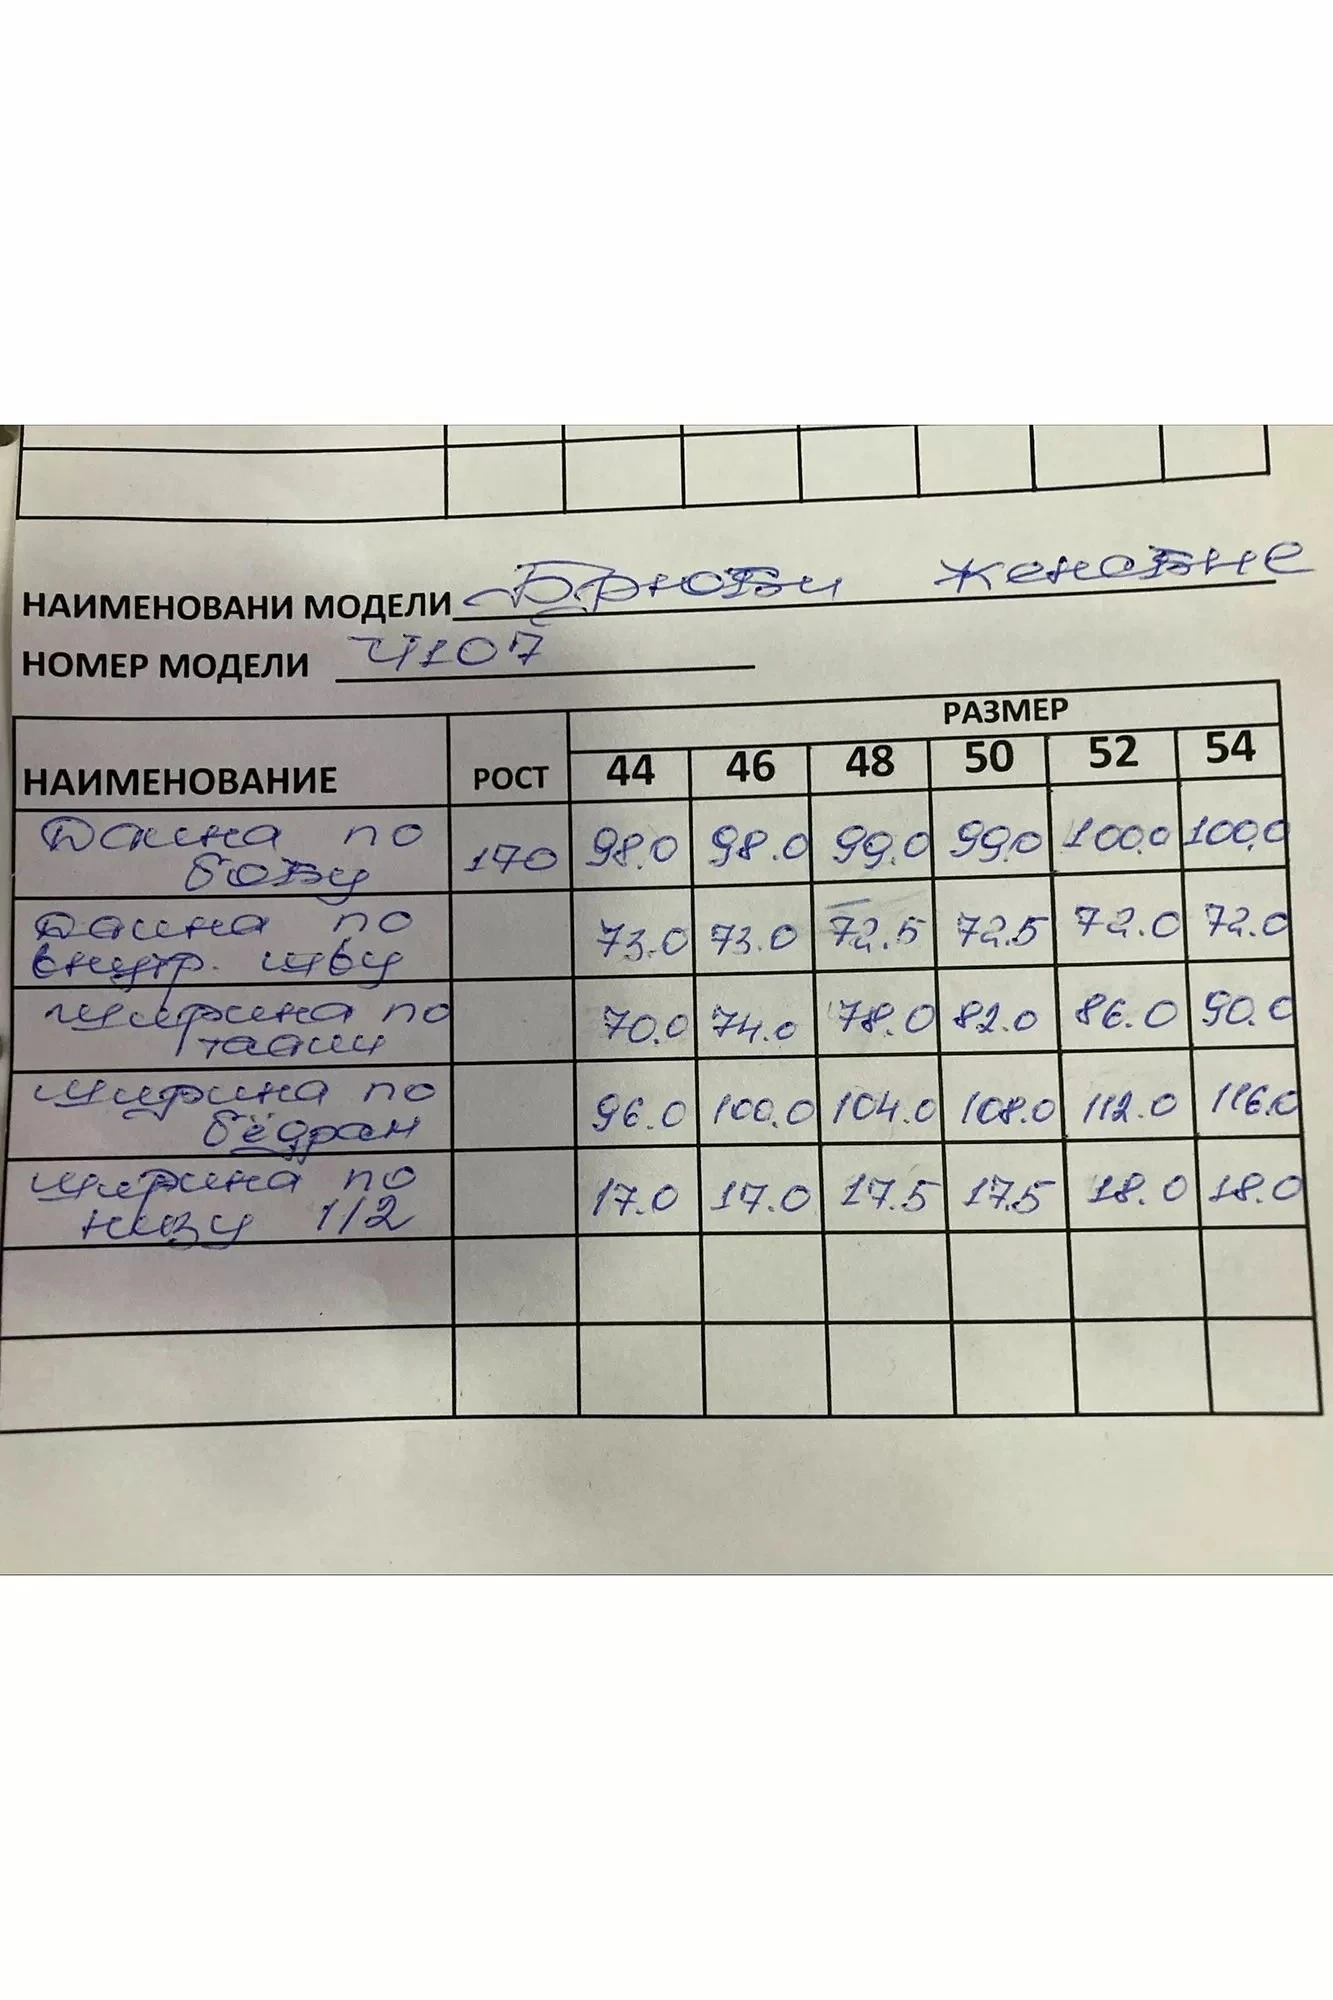 НАИМЕНОВАНИ МОДЕЛИ Брюки женские
НОМЕР МОДЕЛИ 4107
РАЗМЕР
НАИМЕНОВАНИЕ РОСТ 44 46 48 50 52 54
Длина по
боку 170 98.0 98.0 99.0 99.0 100.0 100.0
Длина по
внутр. шву 73.0 73.0 72.5 72.5 72.0 72.0
Ширина по
талии 70.0 74.0 78.0 82.0 86.0 90.0
Ширина по
бёдрам 96.0 100.0 104.0 108.0 112.0 116.0
Ширина по
низу 1/2 17.0 17.0 17.5 17.5 18.0 18.0